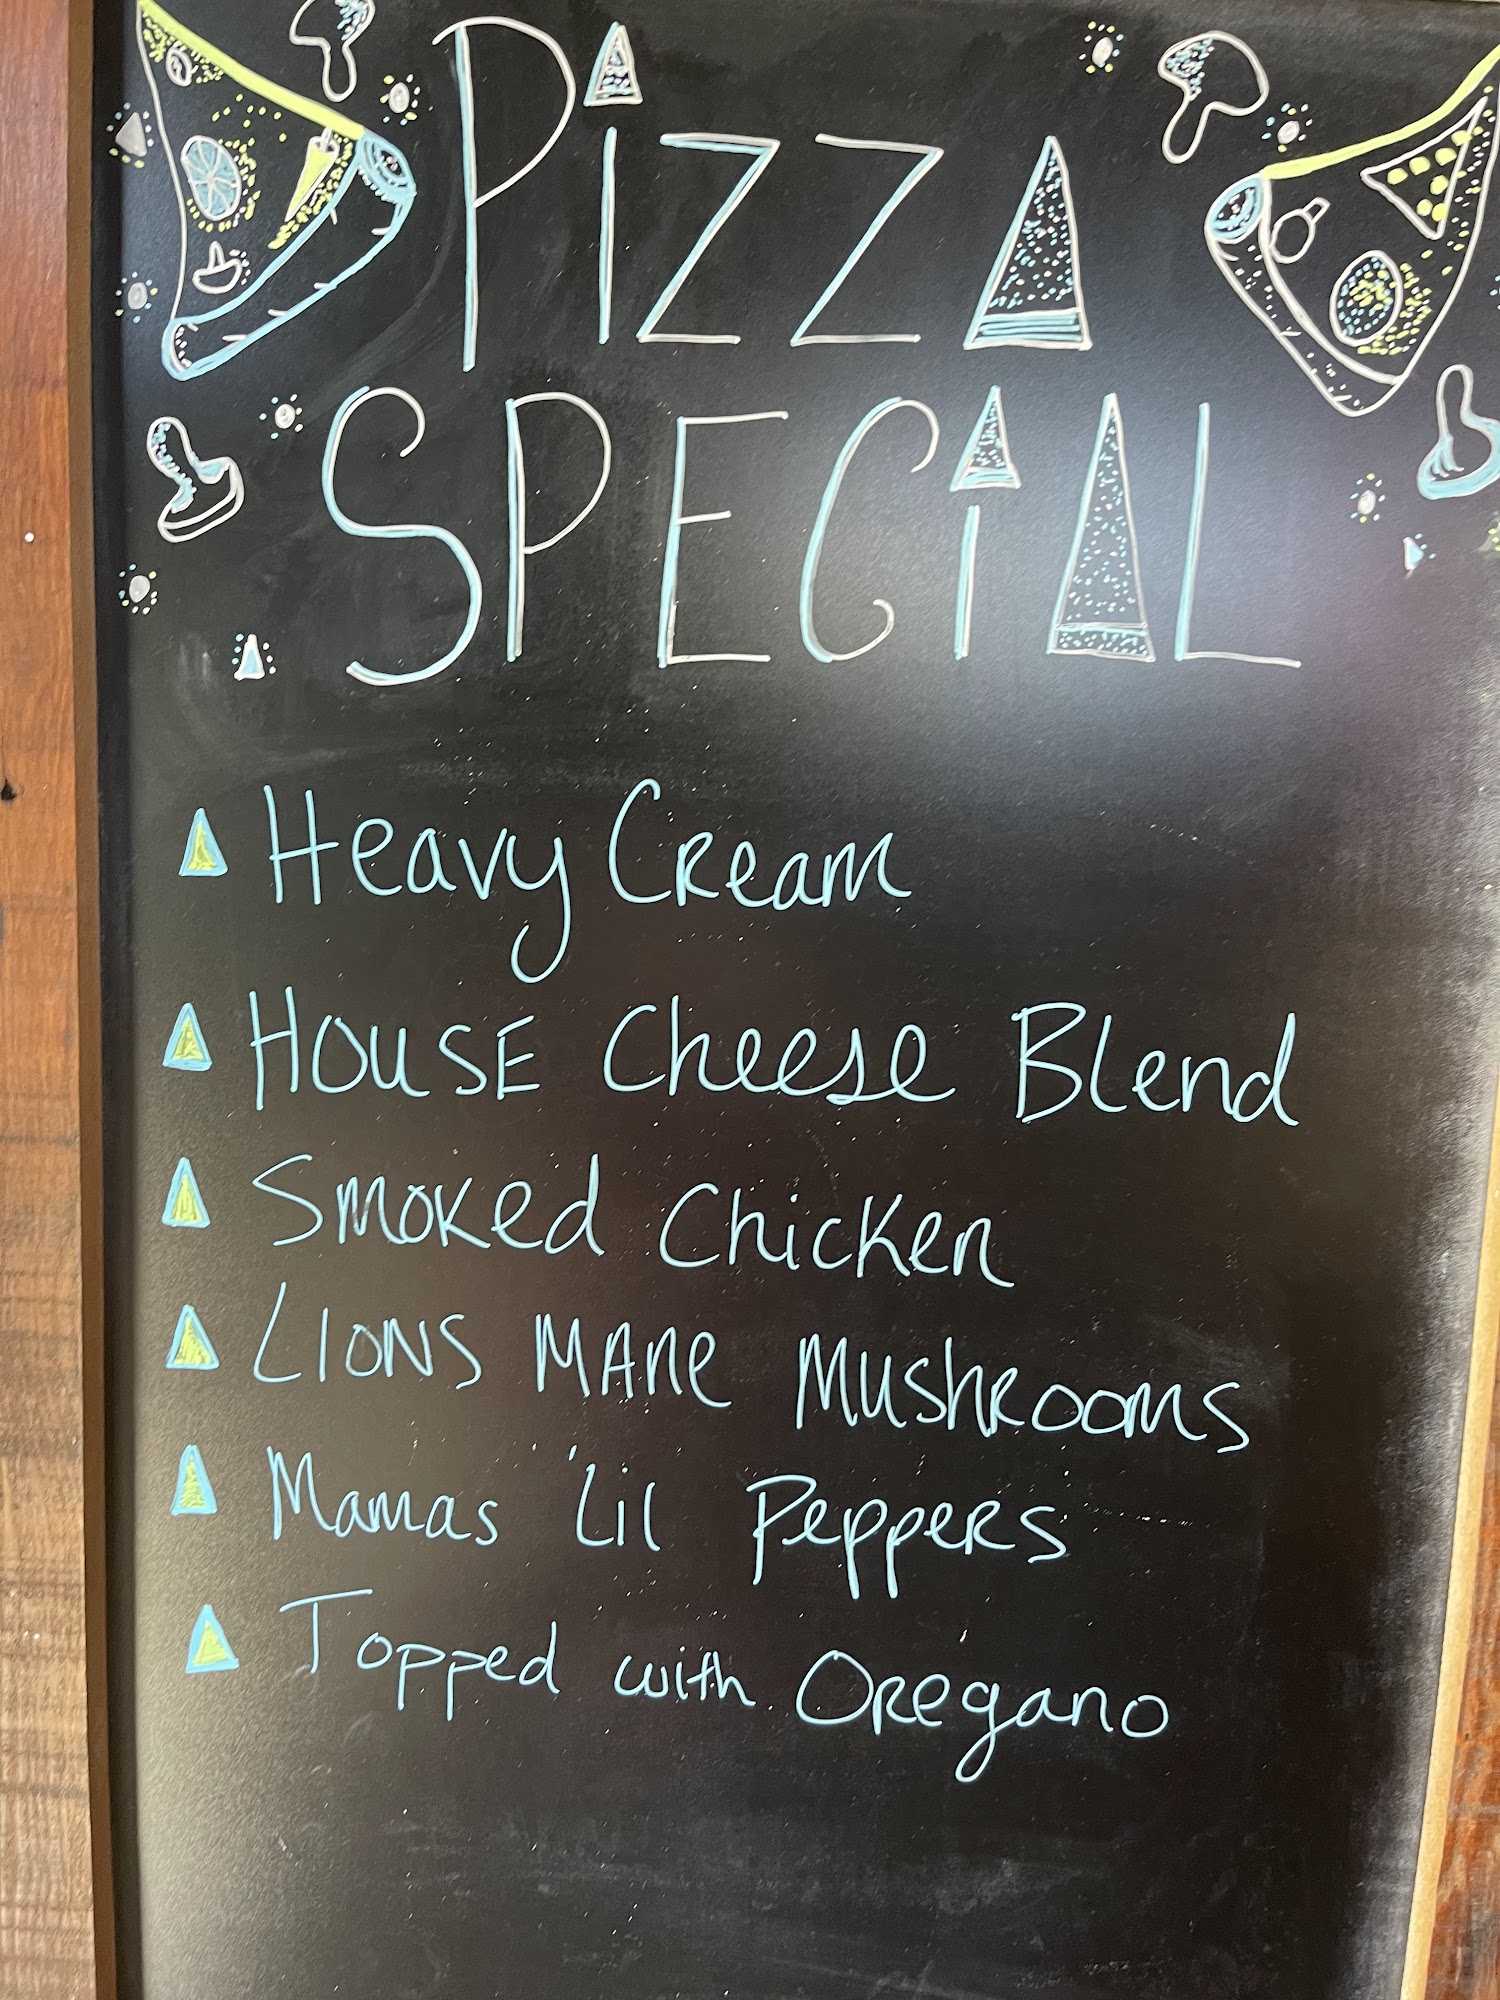 PiZZA
SPECiAL
Heavy Cream
HOUSE Cheese Blend
Smoked Chicken
LIONS MANE MUSHROOMS
Mamas 'Lil Peppers
Topped with Oregano